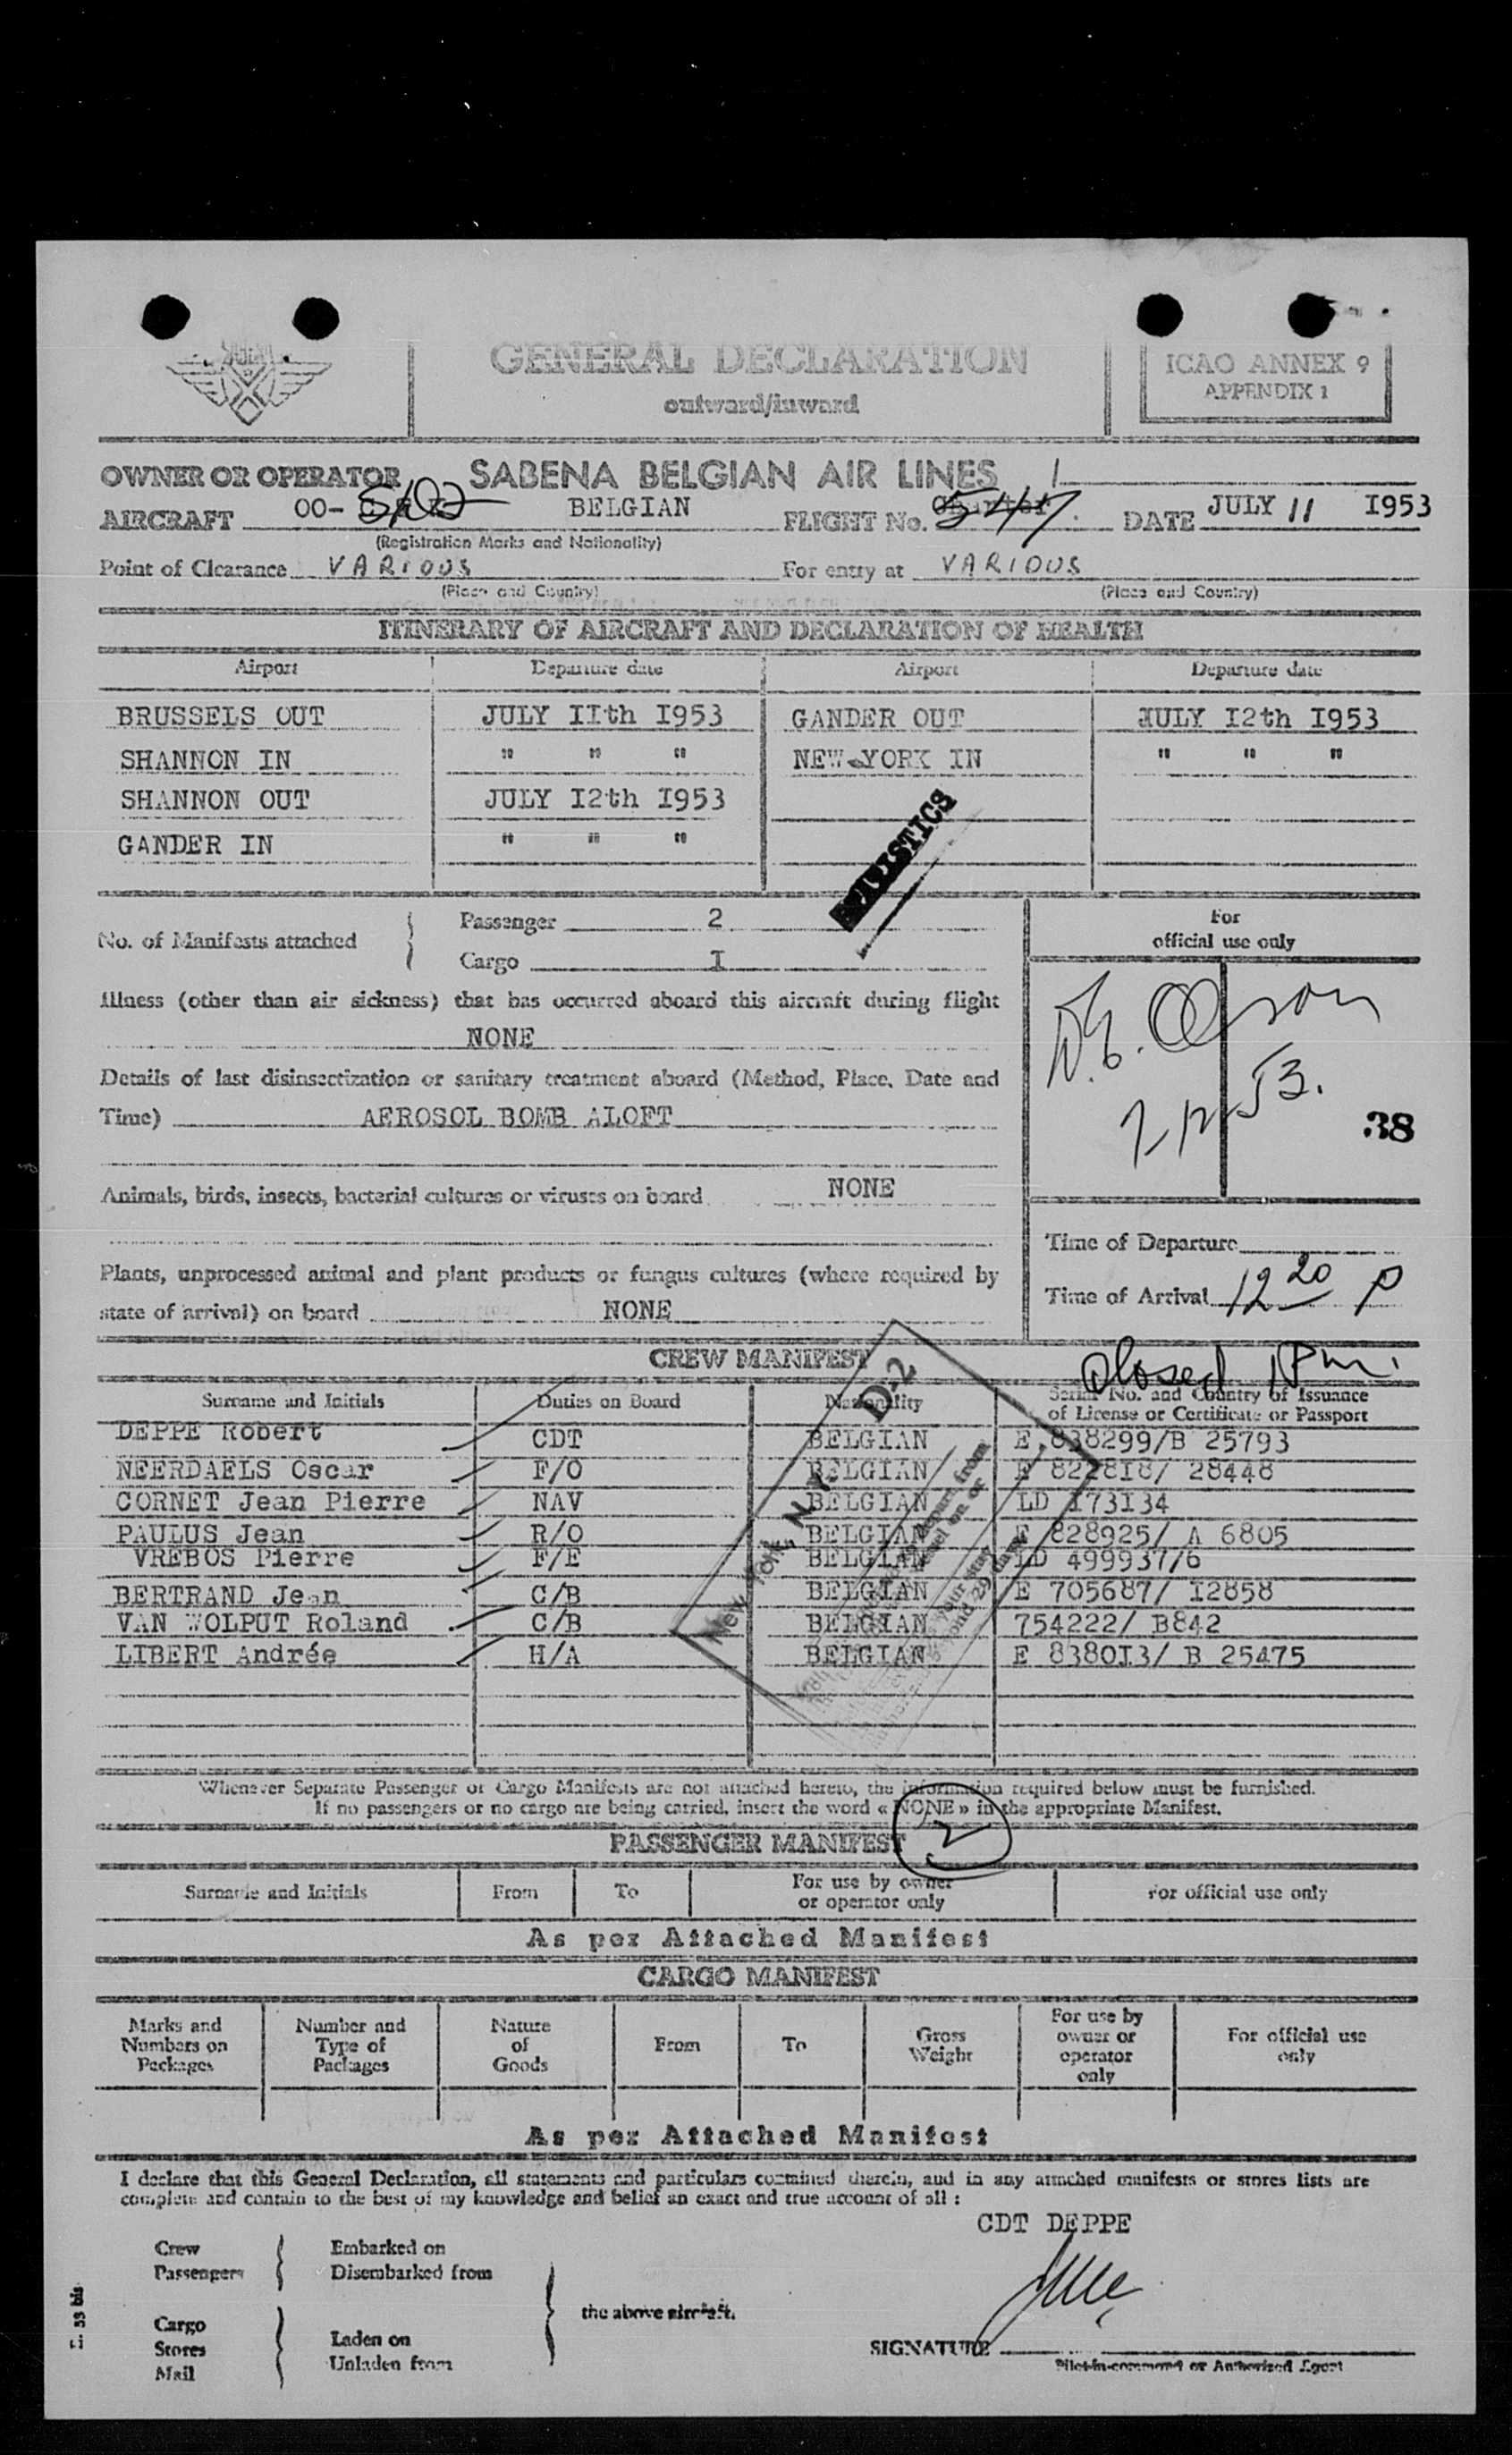 GENERAL DECLARATION
outward/inward
ICAO ANNEX 9
APPENDIX 1
OWNER OR OPERATOR SABENA BELGIAN AIR LINES
AIRCRAFT OO- BELGIAN FLIGHT No. 547 DATE JULY 11 I953
(Registration Marks and Nationality)
Point of Clearance VARIOUS For entry at VARIOUS
(Place and Country) (Place and Country)
ITINERARY OF AIRCRAFT AND DECLARATION OF HEALTH
Airport Departure date Airport Departure date
BRUSSELS OUT JULY IIth I953 GANDER OUT JULY I2th I953
SHANNON IN " " " NEW-YORK IN " " "
SHANNON OUT JULY I2th I953
GANDER IN " " "
STATISTICS
No. of Manifests attached
Passenger 2
Cargo I
For
official use only
Illness (other than air sickness) that has occurred aboard this aircraft during flight
NONE
Details of last disinsectization or sanitary treatment aboard (Method, Place, Date and
Time) AEROSOL BOMB ALOFT
Olson
7/12/53.
38
Animals, birds, insects, bacterial cultures or viruses on board NONE
Plants, unprocessed animal and plant products or fungus cultures (where required by
state of arrival) on board NONE
Time of Departure
Time of Arrival 12 20 P
Closed 1 Pm.
CREW MANIFEST
Surname and Initials Duties on Board Nationality Serial No. and Country of Issuance
of License or Certificate or Passport
DEPPE Robert CDT BELGIAN E 838299/B 25793
NEERDAELS Oscar F/O BELGIAN E 8228I8/ 28448
CORNET Jean Pierre NAV BELGIAN LD I73I34
PAULUS Jean R/O BELGIAN E 828925/ A 6805
VREBOS Pierre F/E BELGIAN LD 499937/6
BERTRAND Jean C/B BELGIAN E 705687/ I2858
VAN WOLPUT Roland C/B BELGIAN 754222/ B842
LIBERT Andrée H/A BELGIAN E 838OI3/ B 25475
New York, N.Y. D-2
Whenever Separate Passenger or Cargo Manifests are not attached hereto, the information required below must be furnished.
If no passengers or no cargo are being carried, insert the word « NONE » in the appropriate Manifest.
PASSENGER MANIFEST
2
Surname and Initials From To For use by owner
or operator only For official use only
As per Attached Manifest
CARGO MANIFEST
Marks and
Numbers on
Packages
Number and
Type of
Packages
Nature
of
Goods
From
To
Gross
Weight
For use by
owner or
operator
only
For official use
only
As per Attached Manifest
I declare that this General Declaration, all statements and particulars contained therein, and in any attached manifests or stores lists are
complete and contain to the best of my knowledge and belief an exact and true account of all :
CDT DEPPE
Crew
Passengers
Embarked on
Disembarked from
Cargo
Stores
Mail
Laden on
Unladen from
the above aircraft.
SIGNATURE
Pilot-in-command or Authorized Agent